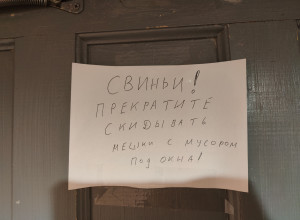 СВИНЬИ!
ПРЕКРАТИТЕ
СКИДЫВАТЬ
МЕШКИ С МУСОРОМ
ПОД ОКНА!